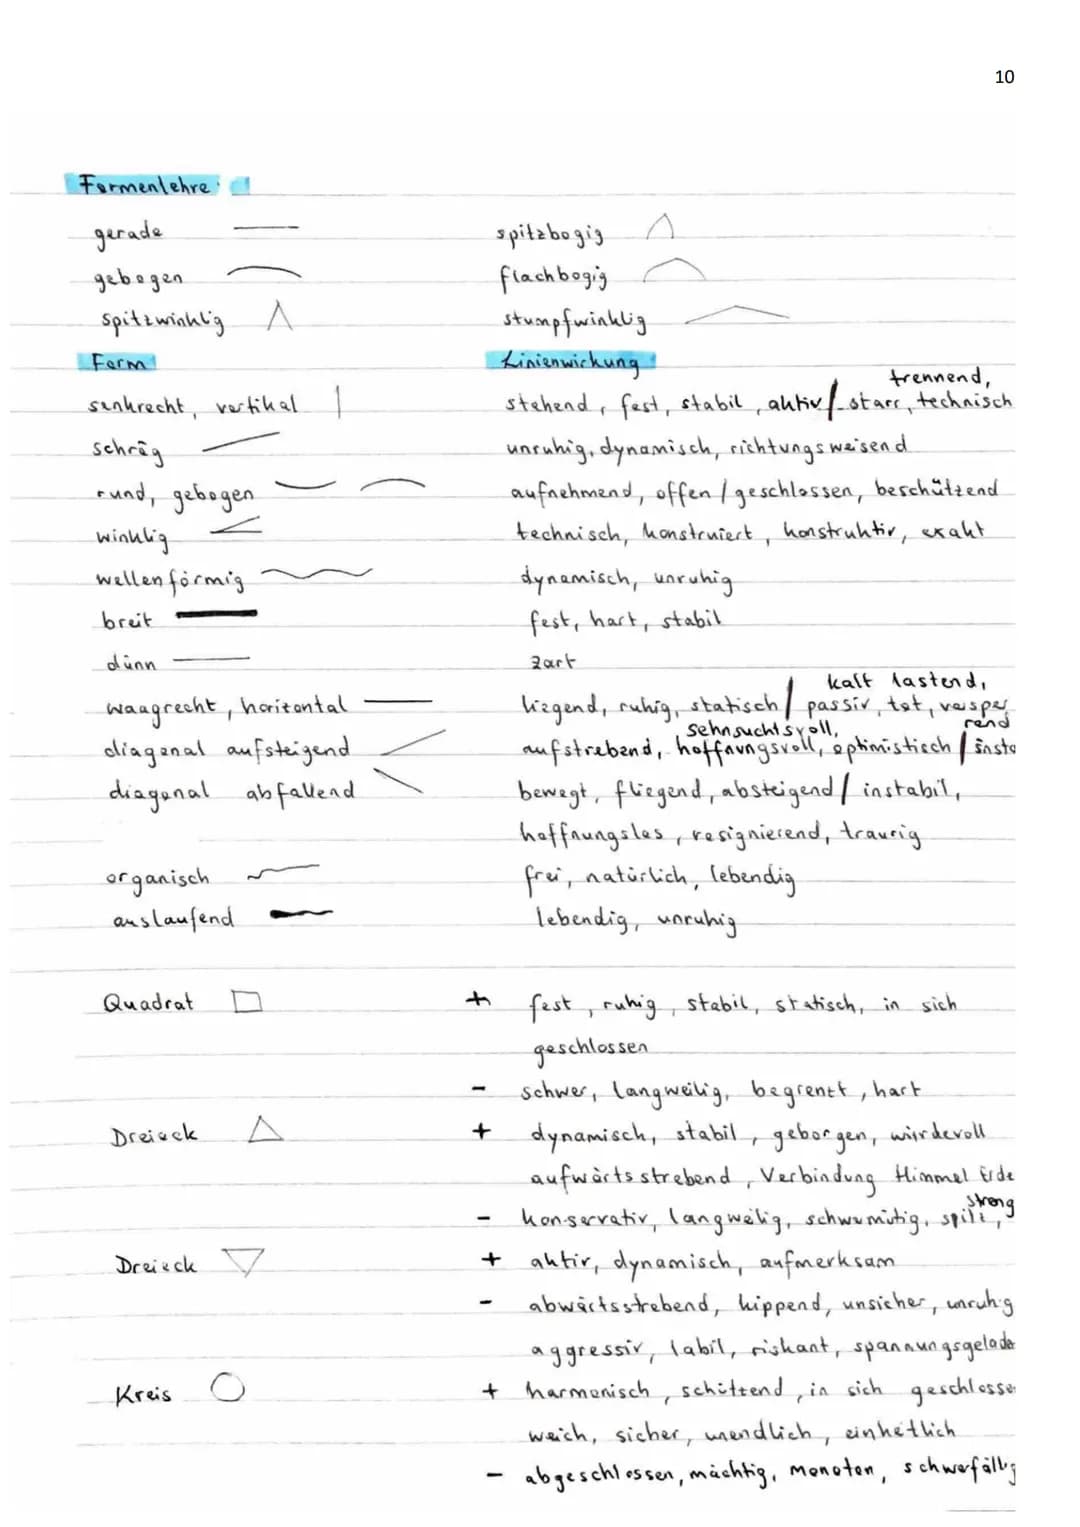 10
Formenlehre
gerade spitzbogig
gebogen flachbogig
spitzwinklig stumpfwinklig
Form Linienwirkung
trennend,
senkrecht, vertikal stehend, fest, stabil, aktiv / starr, technisch
schräg unruhig, dynamisch, richtungsweisend
rund, gebogen aufnehmend, offen / geschlossen, beschützend
winklig technisch, konstruiert, konstruktiv, exakt
wellenförmig dynamisch, unruhig
breit fest, hart, stabil
dünn zart
kalt lastend,
waagrecht, horizontal liegend, ruhig, statisch / passiv, tot, versper
sehnsuchtsvoll, rend
diagonal aufsteigend aufstrebend, hoffnungsvoll, optimistisch / insta
diagonal abfallend bewegt, fliegend, absteigend / instabil,
hoffnungslos, resignierend, traurig
organisch frei, natürlich, lebendig
auslaufend lebendig, unruhig
Quadrat + fest, ruhig, stabil, statisch, in sich
geschlossen
- schwer, langweilig, begrenzt, hart
Dreieck + dynamisch, stabil, geborgen, würdevoll
aufwärtsstrebend, Verbindung Himmel Erde
streng
- konservativ, langweilig, schwermütig, spitz,
Dreieck + aktiv, dynamisch, aufmerksam
- abwärtsstrebend, kippend, unsicher, unruhig
aggressiv, labil, riskant, spannungsgelade
Kreis + harmonisch, schützend, in sich geschlosse
weich, sicher, unendlich, einheitlich
- abgeschlossen, mächtig, monoton, schwerfällig